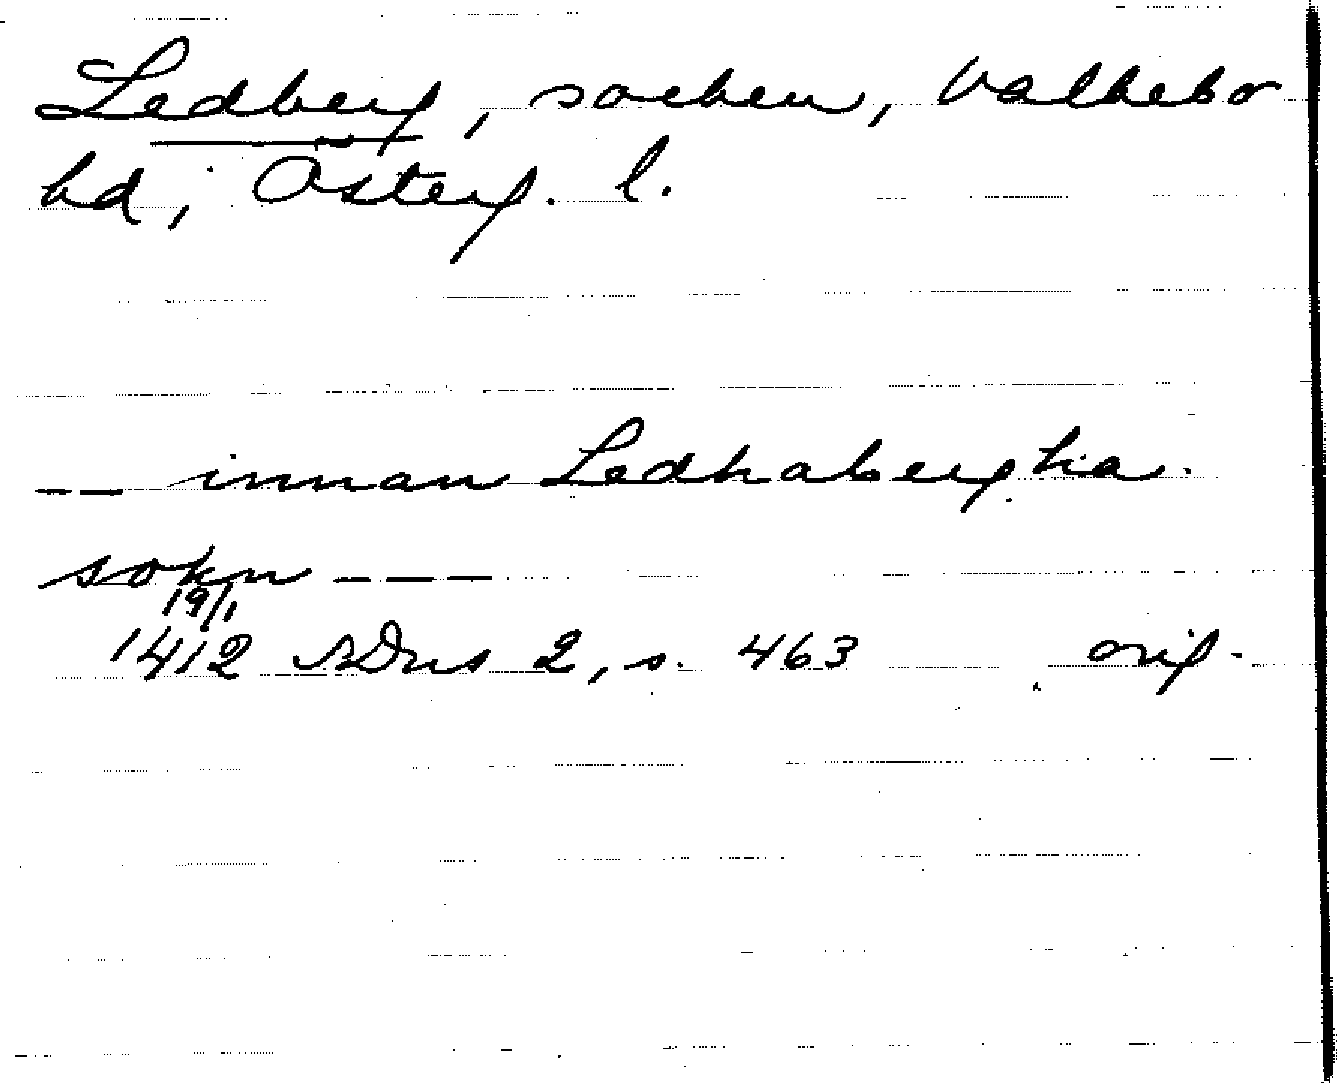 Ledberg, socken, Valkebo
hd, Österg. l.
-- innan Ledhabergha
sokn ---
19/1
1412 SDns 2, s. 463 orig.